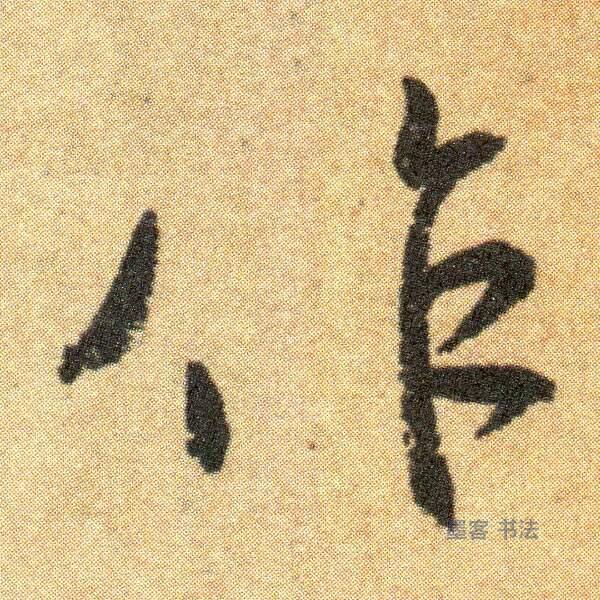 作
墨客 书法